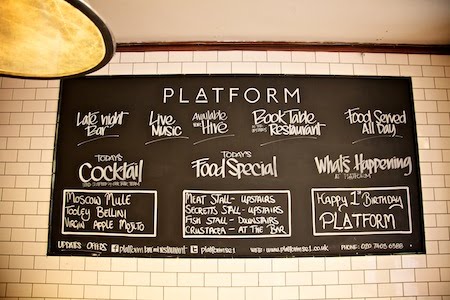 PLATFORM
Late night Live Available Book Table Food Served
Bar Music Hire Restaurant All Day
TODAY'S TODAY'S What's Happening
Cocktail Food Special AT PLATFORM
MOSCOW MULE
TOOLEY BELLINI
VIRGIN APPLE MOJITO
MEAT STALL - UPSTAIRS
SECRETTS STALL - UPSTAIRS
FISH STALL - DOWNSTAIRS
CRUSTACEA - AT THE BAR
HAPPY 1ST BIRTHDAY
PLATFORM
UPDATES OFFERS platform bar and restaurant platformse1 WEB: www.platformse1.co.uk PHONE: 020 7403 6388